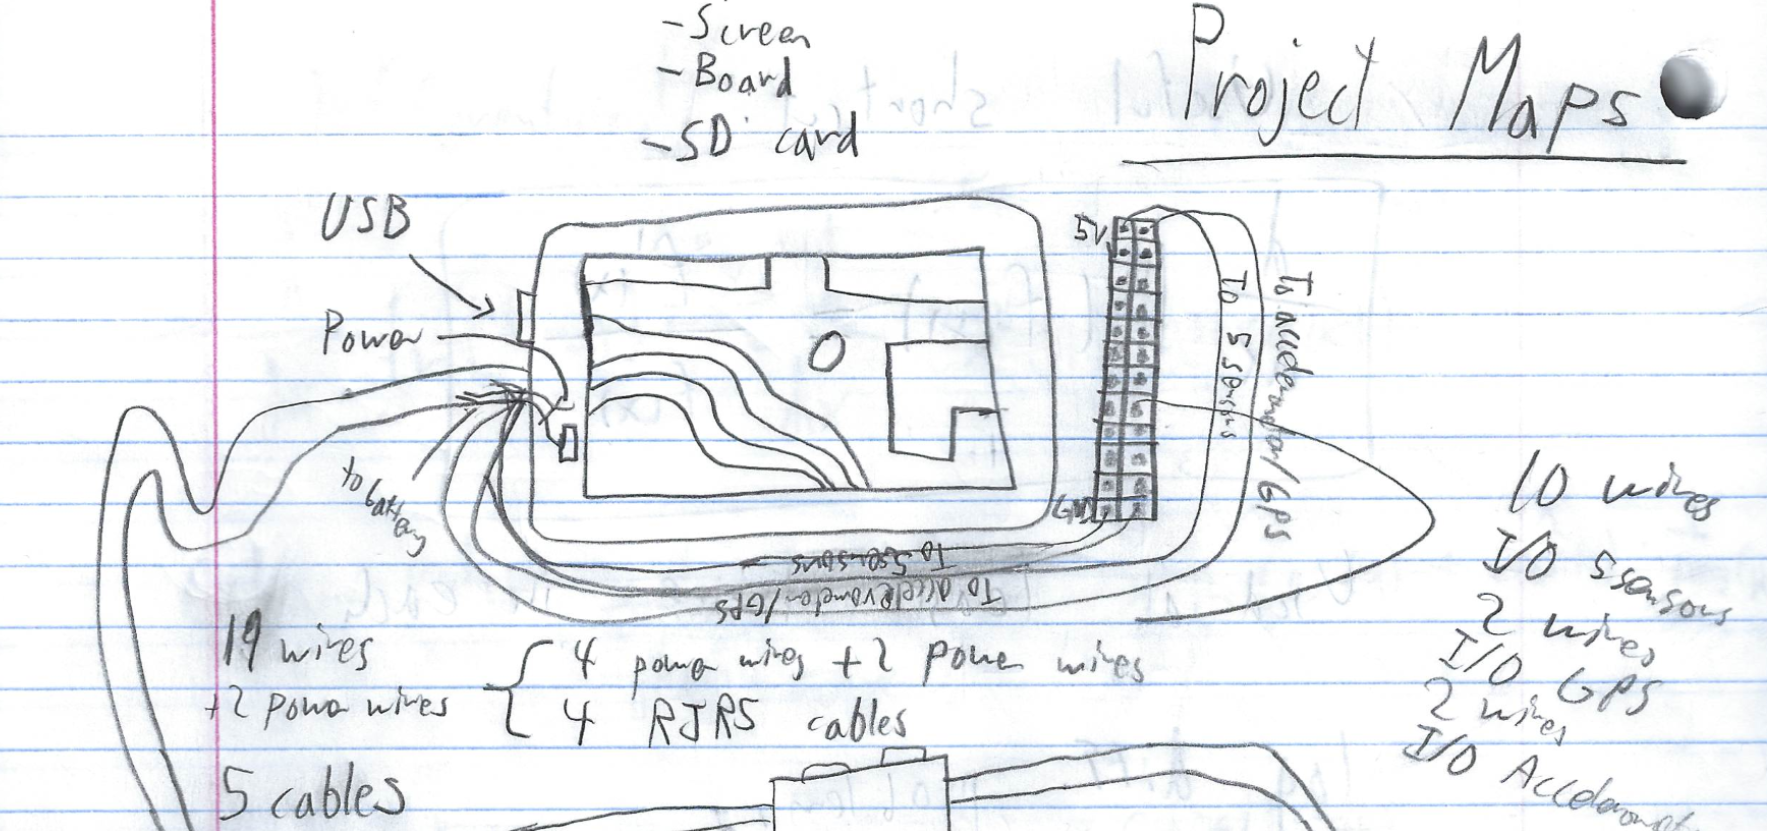 -Screen
-Board
-SD card
Project Maps
USB
Power
to battery
5V
GND
To 5 sensors
To accelerometer/GPS
To 5 sensors
To accelerometer/GPS
10 wires
I/O 5 sensors
2 wires
I/O GPS
2 wires
I/O Accelerometer
19 wires
+2 power wires
4 power wires + 2 power wires
4 RJRS cables
5 cables